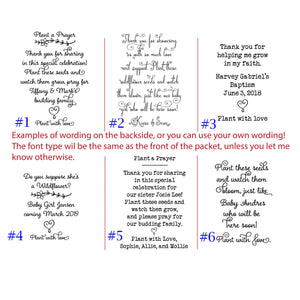 Plant a Prayer
Thank you for sharing
in this special celebration!
Plant these seeds and
watch them grow pray for
Tiffany & Mark's
budding family.
Plant with love
#1
Thank you for showering
us with so much love
and support. Plant these
wildflower seeds and watch
them bloom, just like our baby
who will be here soon!
#2
Thank you for
helping me grow
in my faith.
Harvey Gabriel's
Baptism
June 3, 2018
Plant with love
#3
Examples of wording on the backside, or you can use your own wording!
The font type wil be the same as the front of the packet, unless you let me
know otherwise.
Do you suppose she's
a Wildflower?
Baby Girl Jansen
coming March 2019
Plant with love
#4
Plant a Prayer
Thank you for sharing
in this special
celebration for
our sister Josie Lee!
Plant these seeds and
watch them grow,
and please pray for
our budding family.
Plant with Love,
Sophie, Allie, and Mollie
#5
Plant these seeds
and watch them
bloom, just like
Baby Andres
who will be
here soon!
Plant with love
#6